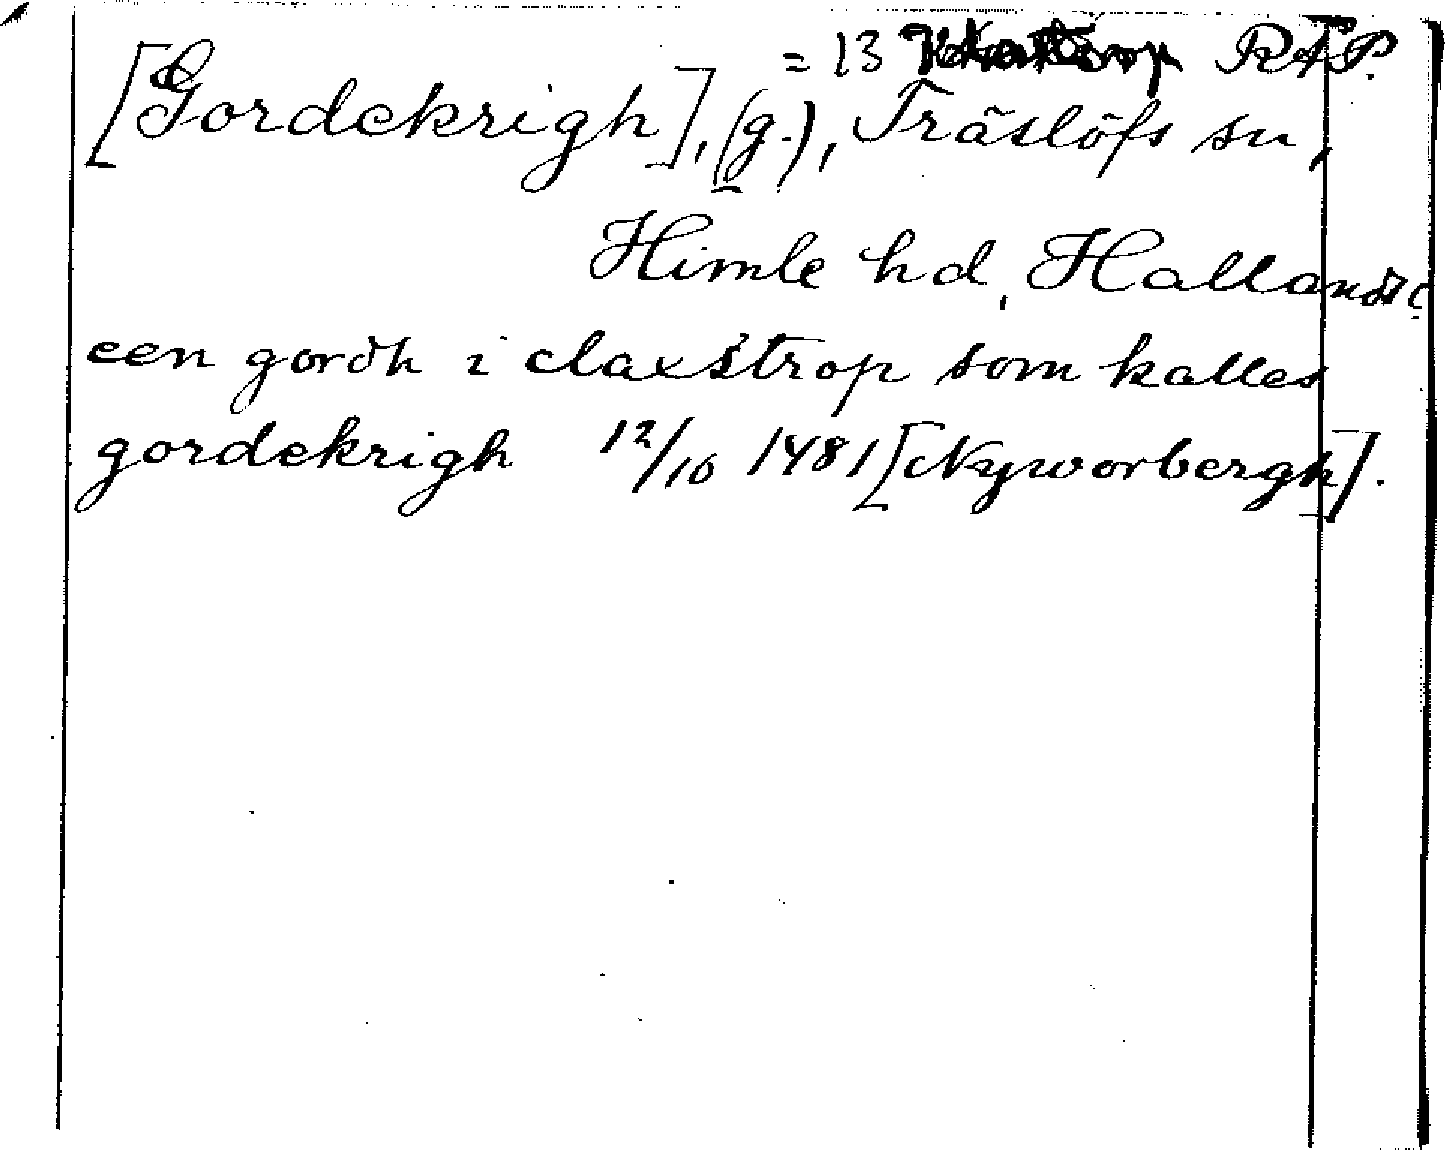 = 13 RAP.
[Gordekrigh], (g.), Träslöfs sn,
Himle hd, Hallands l.
een gordh i claxstrop som kalles
gordekrigh 12/10 1481 [Nyworbergh].